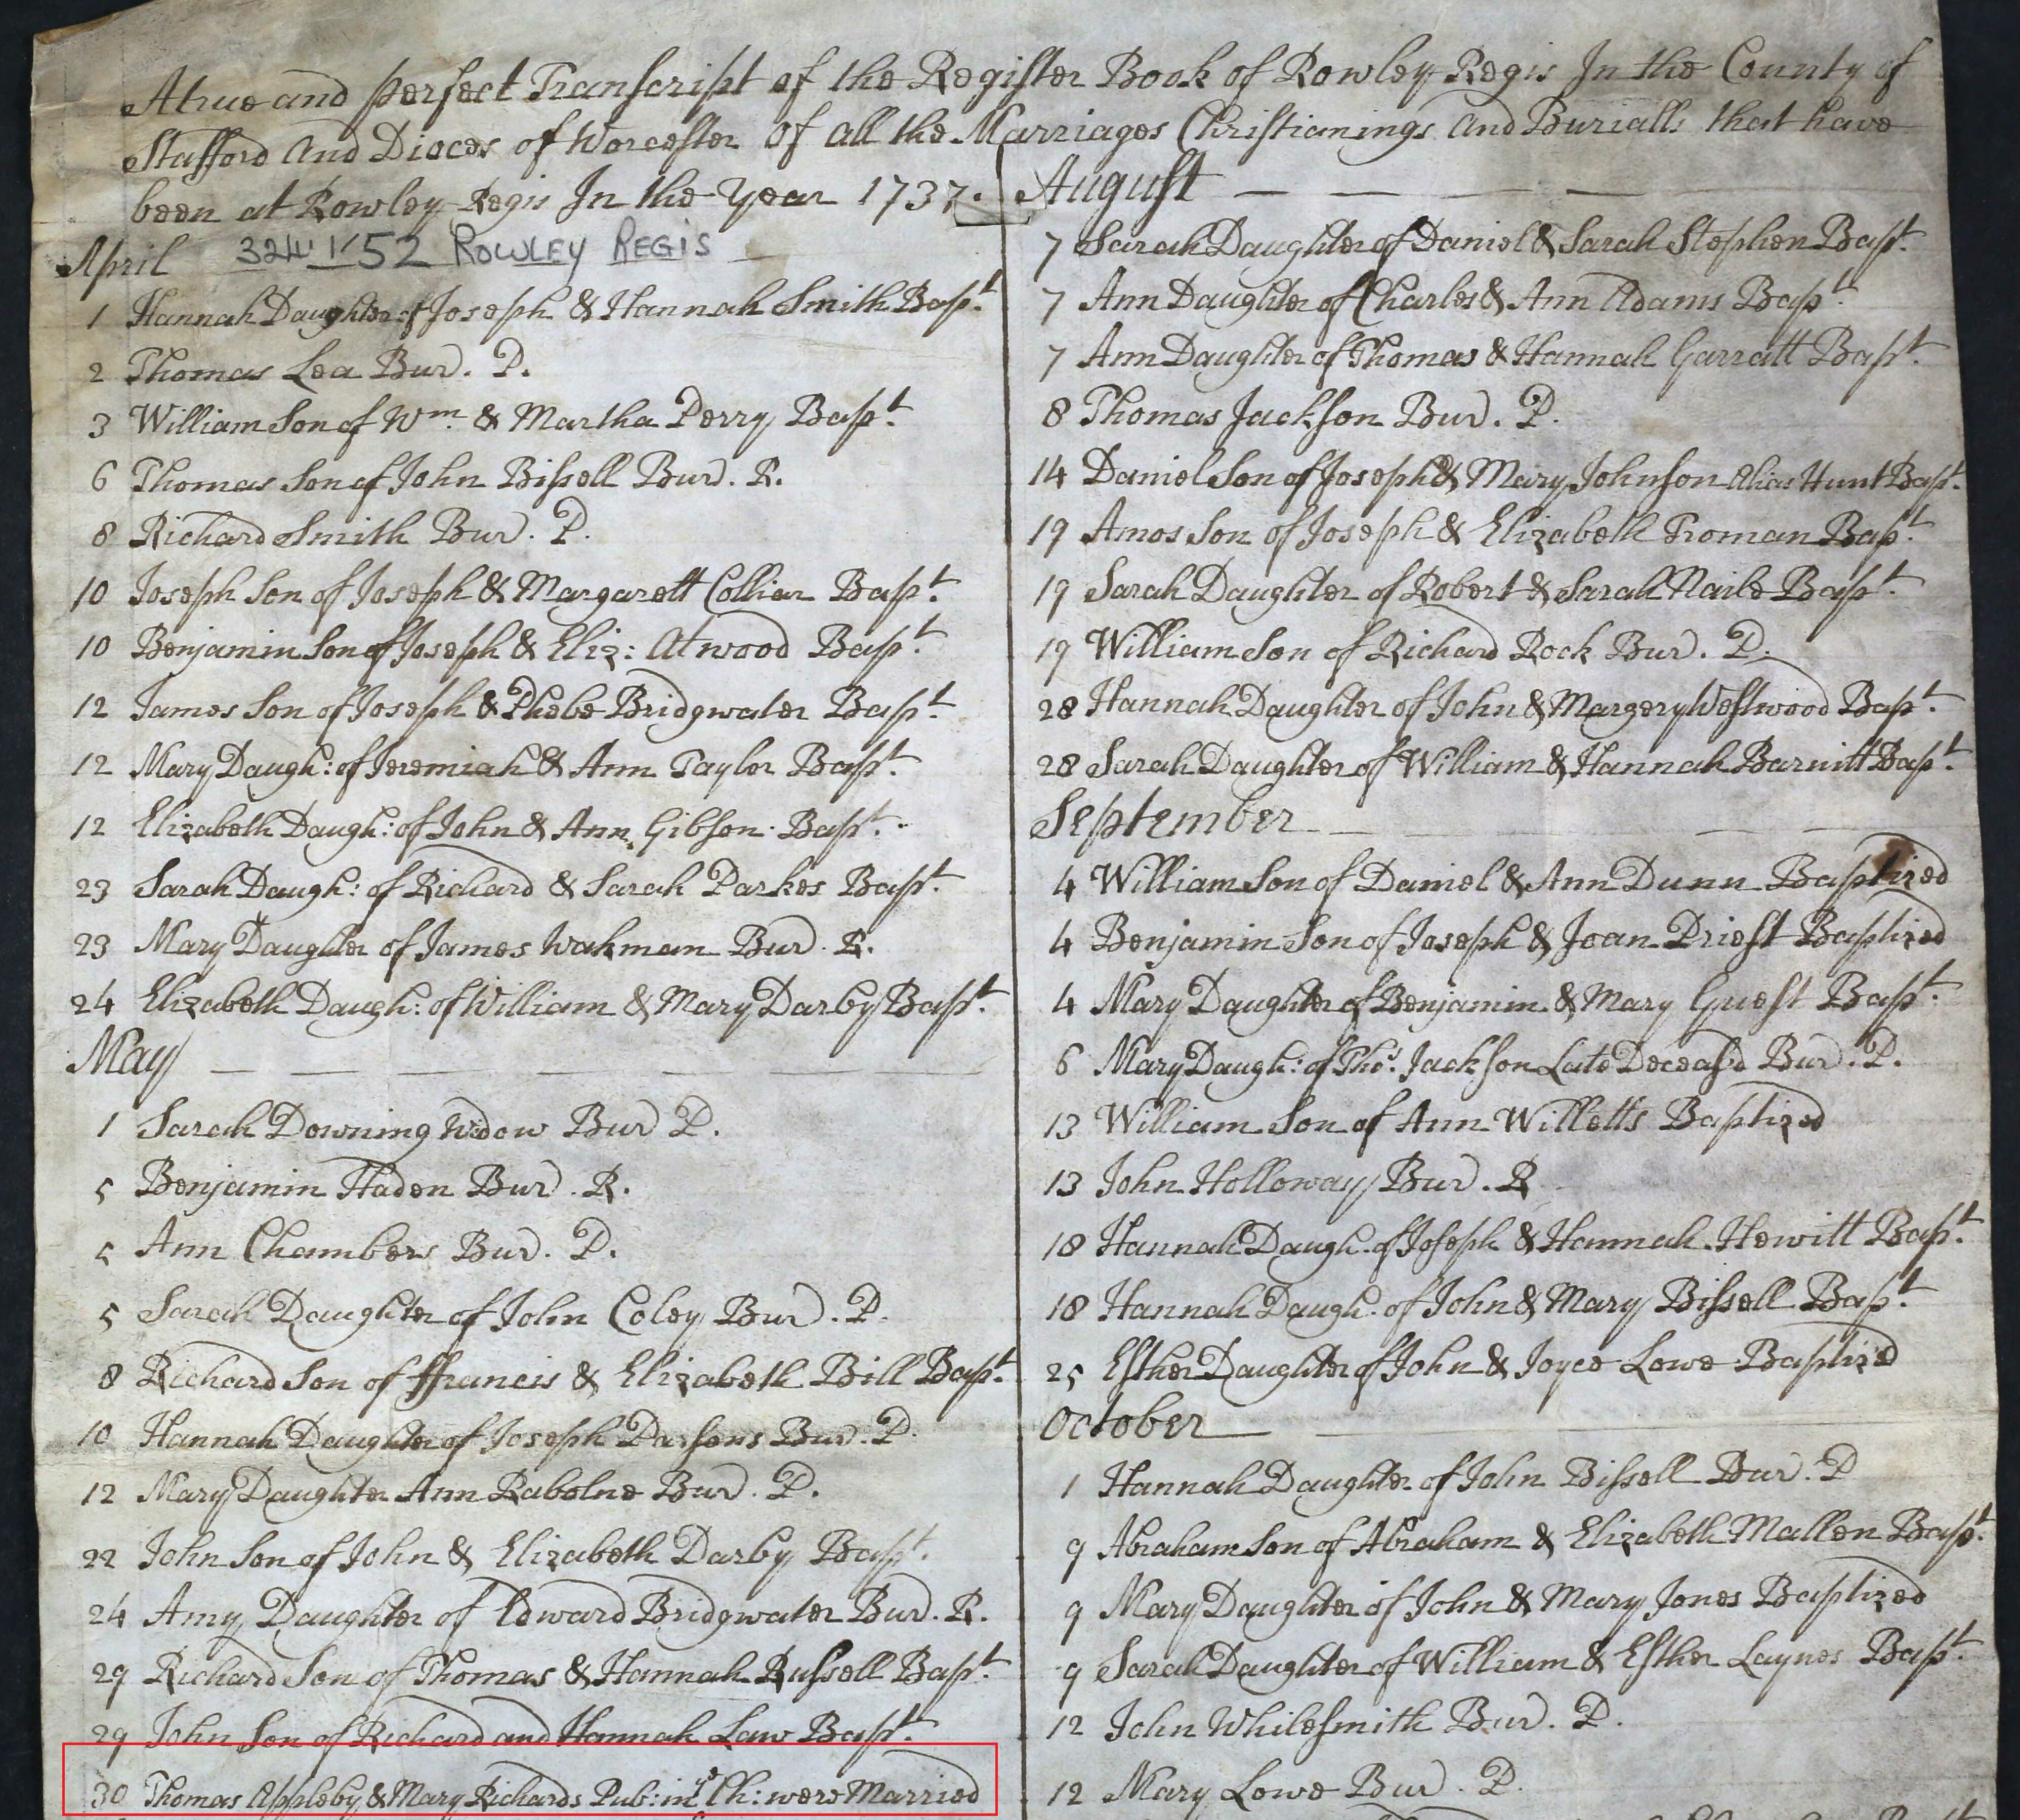 A true and perfect Transcript of the Register Book of Rowley Regis In the County of
Stafford and Dioces of Worcester of all the Marriages Christianings and Burialls that have
been at Rowley Regis In the Year 1737.
April
324 1752 ROWLEY REGIS
1 Hannah Daughter of Joseph & Hannah Smith Bapt.
2 Thomas Lea Bur. P.
3 William Son of Wm. & Martha Perry Bapt.
6 Thomas Son of John Bissell Bur. R.
8 Richard Smith Bur. P.
10 Joseph Son of Joseph & Margarett Colliar Bapt.
10 Benjamin Son of Joseph & Eliz: Atwood Bapt.
12 James Son of Joseph & Phebe Bridgwater Bapt.
12 Mary Daugh: of Jeremiah & Ann Taylor Bapt.
12 Elizabeth Daugh: of John & Ann Gibson Bapt.
23 Sarah Daugh: of Richard & Sarah Parkes Bapt.
23 Mary Daughter of James Wakman Bur. R.
24 Elizabeth Daugh: of William & Mary Darby Bapt.
May
1 Sarah Downing Widow Bur P.
5 Benjamin Haden Bur. R.
5 Ann Chambers Bur. P.
5 Sarah Daughter of John Coley Bur. P.
8 Richard Son of ffrancis & Elizabeth Bill Bapt.
10 Hannah Daughter of Joseph Parsons Bur. P.
12 Mary Daughter Ann Rabolne Bur. P.
22 John Son of John & Elizabeth Darby Bapt.
24 Amy Daughter of Edward Bridgwater Bur. R.
29 Richard Son of Thomas & Hannah Russell Bapt.
29 John Son of Richard and Hannah Law Bapt.
30 Thomas Appleby & Mary Richards Pub: in ye Ch: were Married
August
7 Sarah Daughter of Daniel & Sarah Stephen Bapt.
7 Ann Daughter of Charles & Ann Adams Bapt.
7 Ann Daughter of Thomas & Hannah Garratt Bapt.
8 Thomas Jackson Bur. P.
14 Daniel Son of Joseph & Mary Johnson Alias Hunt Bapt.
19 Amos Son of Joseph & Elizabeth Troman Bapt.
19 Sarah Daughter of Robert & Sarah Naile Bapt.
19 William Son of Richard Rock Bur. P.
28 Hannah Daughter of John & Margery Westwood Bapt.
28 Sarah Daughter of William & Hannah Barnitt Bapt.
September
4 William Son of Daniel & Ann Dunn Baptized
4 Benjamin Son of Joseph & Joan Priest Baptized
4 Mary Daughter of Benjamin & Mary Guest Bapt.
6 Mary Daugh: of Thos. Jackson Late Deceas'd Bur. P.
13 William Son of Ann Willetts Baptized
13 John Holloway Bur. R
18 Hannah Daugh. of Joseph & Hannah Hewitt Bapt.
18 Hannah Daugh. of John & Mary Bissell Bapt.
25 Esther Daughter of John & Joyce Lowe Baptiz'd
October
1 Hannah Daughter of John Bissell Bur. P
9 Abraham Son of Abraham & Elizabeth Mallen Bapt.
9 Mary Daughter of John & Mary Jones Baptized
9 Sarah Daughter of William & Esther Laynes Bapt.
12 John Whilesmith Bur. P.
12 Mary Lowe Bur. P.